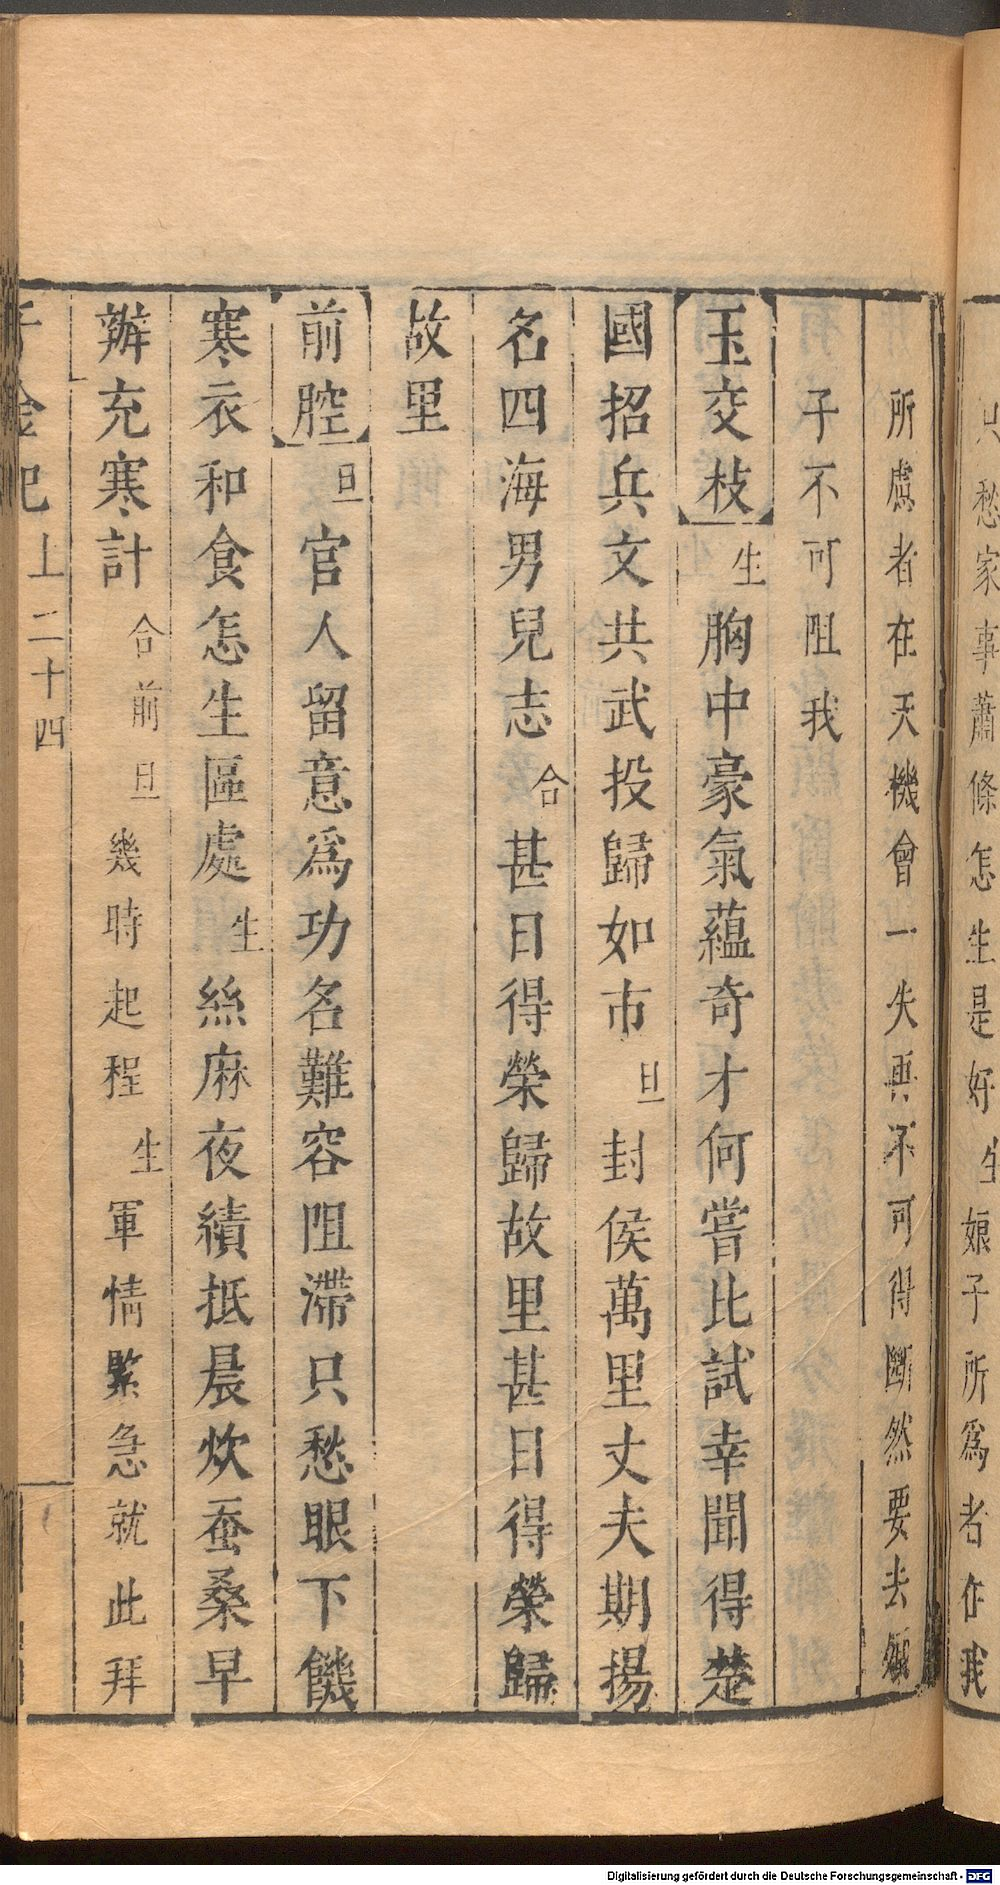 只愁家事蕭條怎生是好生娘子所爲者在我
所慮者在天機會一失再不可得斷然要去娘
子不可阻我
玉交枝生胸中豪氣蘊奇才何嘗比試幸聞得楚
國招兵文共武投歸如市旦封侯萬里丈夫期揚
名四海男兒志合甚日得榮歸故里甚日得榮歸
故里
前腔旦官人留意爲功名難容阻滯只愁眼下饑
寒衣和食怎生區處生絲麻夜績抵晨炊蚕桑早
辦充寒計合前旦幾時起程生軍情緊急就此拜
千金記上二十四
Digitalisierung gefördert durch die Deutsche Forschungsgemeinschaft - DFG